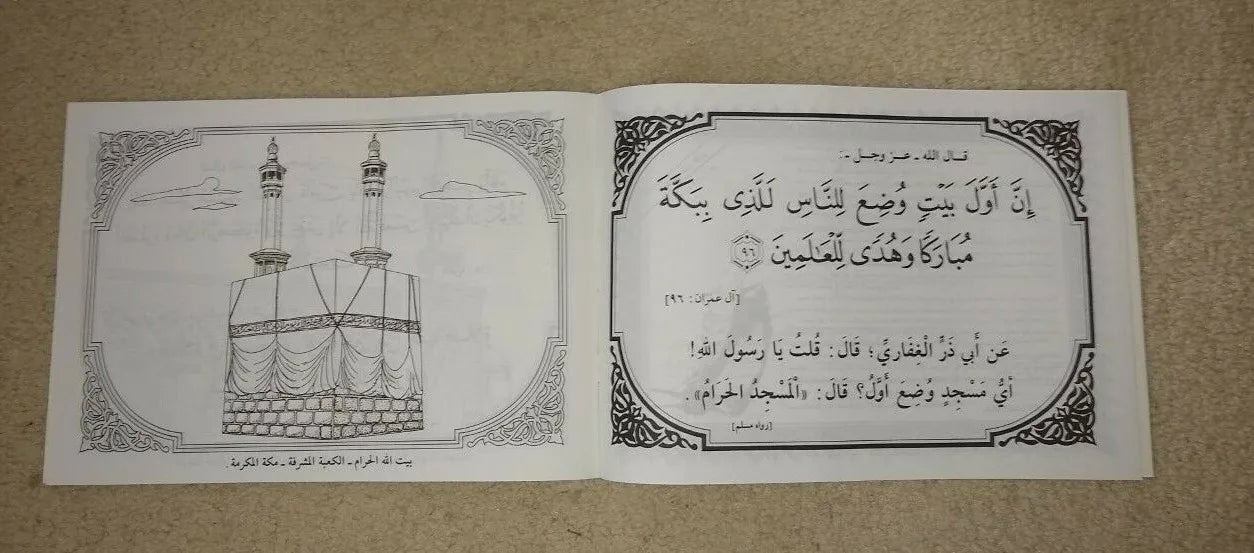 قال الله - عز وجل -:
إِنَّ أَوَّلَ بَيْتٍ وُضِعَ لِلنَّاسِ لَلَّذِى بِبَكَّةَ
مُبَارَكًا وَهُدًى لِّلْعَٰلَمِينَ ٩٦
[آل عمران: ٩٦]
عَن أَبي ذَرٍّ الْغِفاريِّ؛ قَالَ: قُلتُ يَا رَسُولَ اللهِ!
أَيُّ مَسْجِدٍ وُضِعَ أَوَّلُ؟ قَالَ: «الْمَسْجِدُ الحَرَامُ».
[رواه مسلم]
بيت الله الحرام - الكعبة المشرفة - مكة المكرمة.